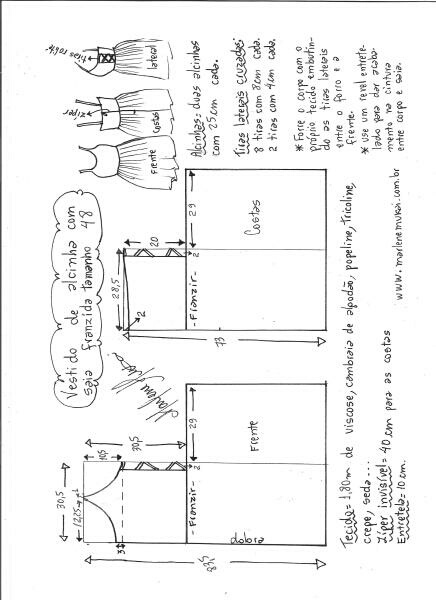 Vestido de alcinha com
saia franzida tamanho
48
Frente
Costas
zíper
lateral
Alcinhas= duas alcinhas
com 25cm cada.
Tiras laterais cruzadas:
8 tiras com 8cm cada.
2 tiras com 4cm cada.
* Forre o corpo com o
próprio tecido embutin-
do as tiras laterais
entre o forro e a
frente.
* use um revel entrete-
lado para dar acaba-
mento na cintura
entre corpo e saia.
30,5
12,25
1
10,5
30,5
3
83,5
29
2
-Franzir-
Frente
dobra
28,5
2
20
29
2
-Franzir-
Costas
73
Tecido= 1,80m de viscose, cambraia de algodão, popeline, tricoline,
crepe, seda...
Zíper invisível= 40cm para as costas
Entretela= 10cm.
www.marlenemukai.com.br